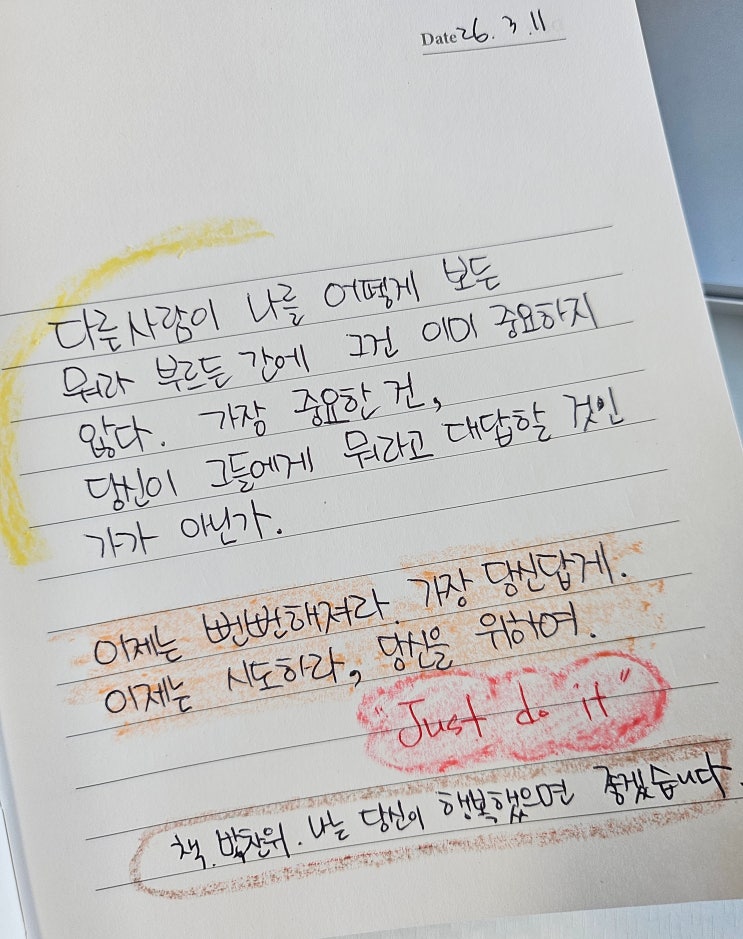 Date 26. 3. 11
다른 사람이 나를 어떻게 보든
뭐라 부르든 간에 그건 이미 중요하지
않다. 가장 중요한 건,
당신이 그들에게 뭐라고 대답할 것인
가가 아닌가.
이제는 뻔뻔해져라. 가장 당신답게.
이제는 시도하라, 당신을 위하여.
"Just do it"
책. 박찬위. 나는 당신이 행복했으면 좋겠습니다.